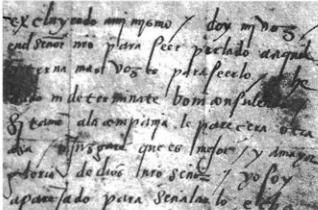 excluyendo a mi mismo / doy mi voz /
señor nro para seer perlado a aquel
terna mas vozes para seerlo / he
dado indeterminate boni consulendo
si tamen a la compañia le parecera otra
juzgare que es mejor / y a mayor
gloria de dios nro señor / yo soy
aparejado para señalarlo